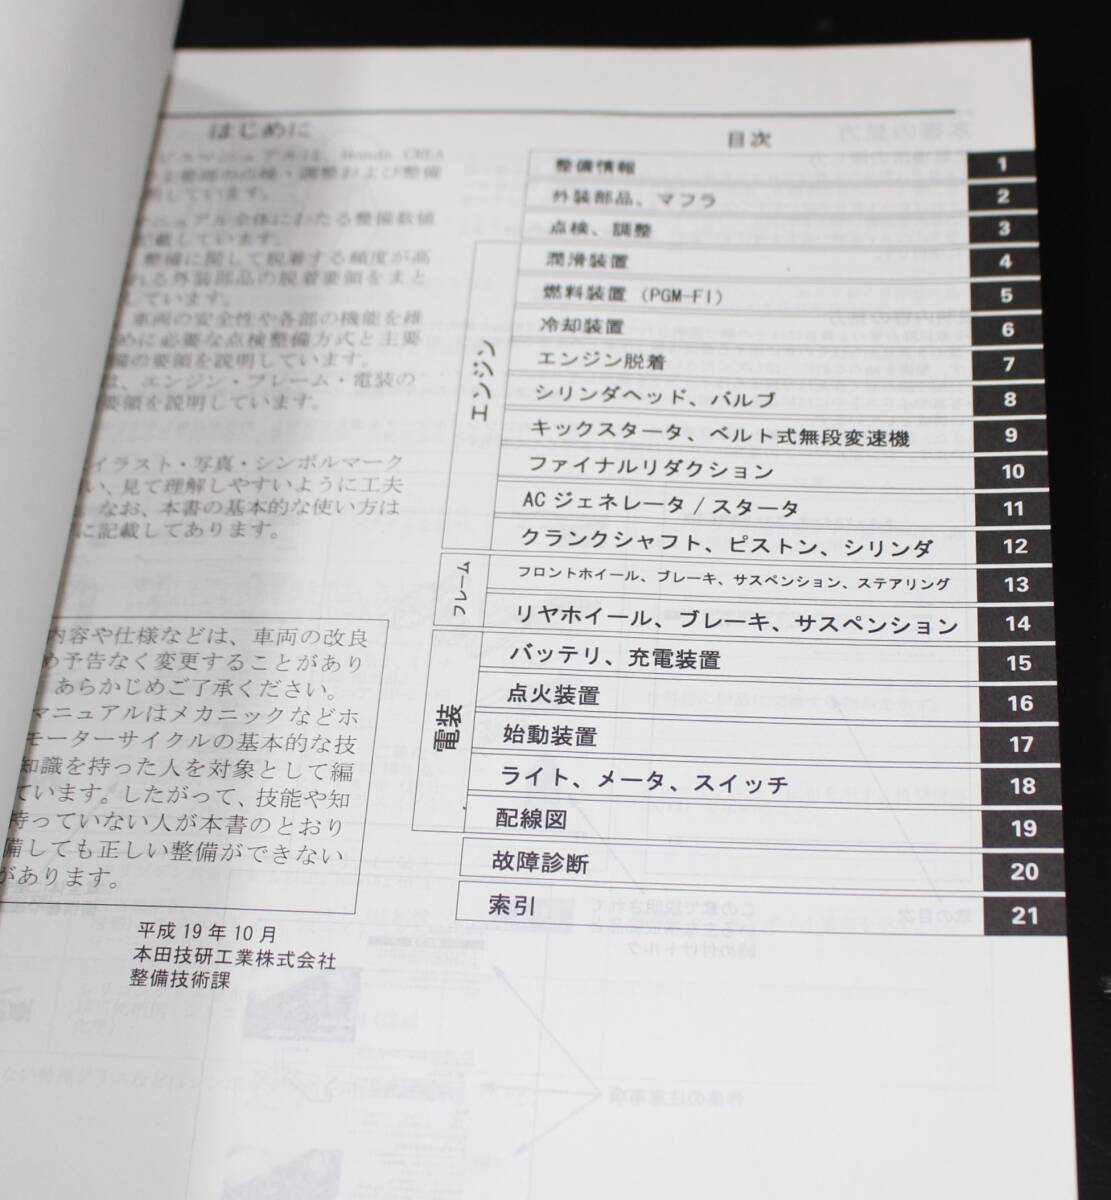 はじめに
ビスマニュアルは、Honda CREA
主要部の点検・調整および整備
明しています。
マニュアル全体にわたる整備数値
記載しています。
整備に関して脱着する頻度が高
れる外装部品の脱着要領をまと
しています。
車両の安全性や各部の機能を維
めに必要な点検整備方式と主要
備の要領を説明しています。
は、エンジン・フレーム・電装の
要領を説明しています。
イラスト・写真・シンボルマーク
い、見て理解しやすいように工夫
。なお、本書の基本的な使い方は
に記載してあります。
内容や仕様などは、車両の改良
め予告なく変更することがあり
あらかじめご了承ください。
マニュアルはメカニックなどホ
モーターサイクルの基本的な技
知識を持った人を対象として編
ています。したがって、技能や知
持っていない人が本書のとおり
備しても正しい整備ができない
があります。
平成 19 年 10 月
本田技研工業株式会社
整備技術課
目次
整備情報 1
外装部品、マフラ 2
点検、調整 3
エンジン
潤滑装置 4
燃料装置 (PGM-FI) 5
冷却装置 6
エンジン脱着 7
シリンダヘッド、バルブ 8
キックスタータ、ベルト式無段変速機 9
ファイナルリダクション 10
AC ジェネレータ / スタータ 11
クランクシャフト、ピストン、シリンダ 12
フレーム
フロントホイール、ブレーキ、サスペンション、ステアリング 13
リヤホイール、ブレーキ、サスペンション 14
電装
バッテリ、充電装置 15
点火装置 16
始動装置 17
ライト、メータ、スイッチ 18
配線図 19
故障診断 20
索引 21